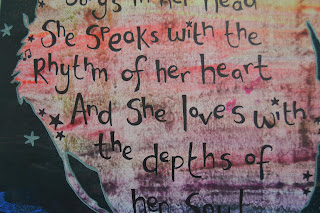 Songs in her head
She speaks with the
Rhythm of her heart
And She loves with
the depths of
her Soul